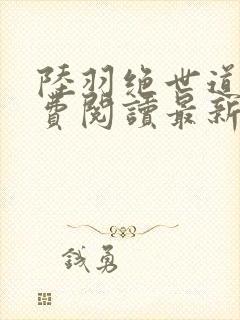 陸羽絶世道
費閱讀最新
錢勇